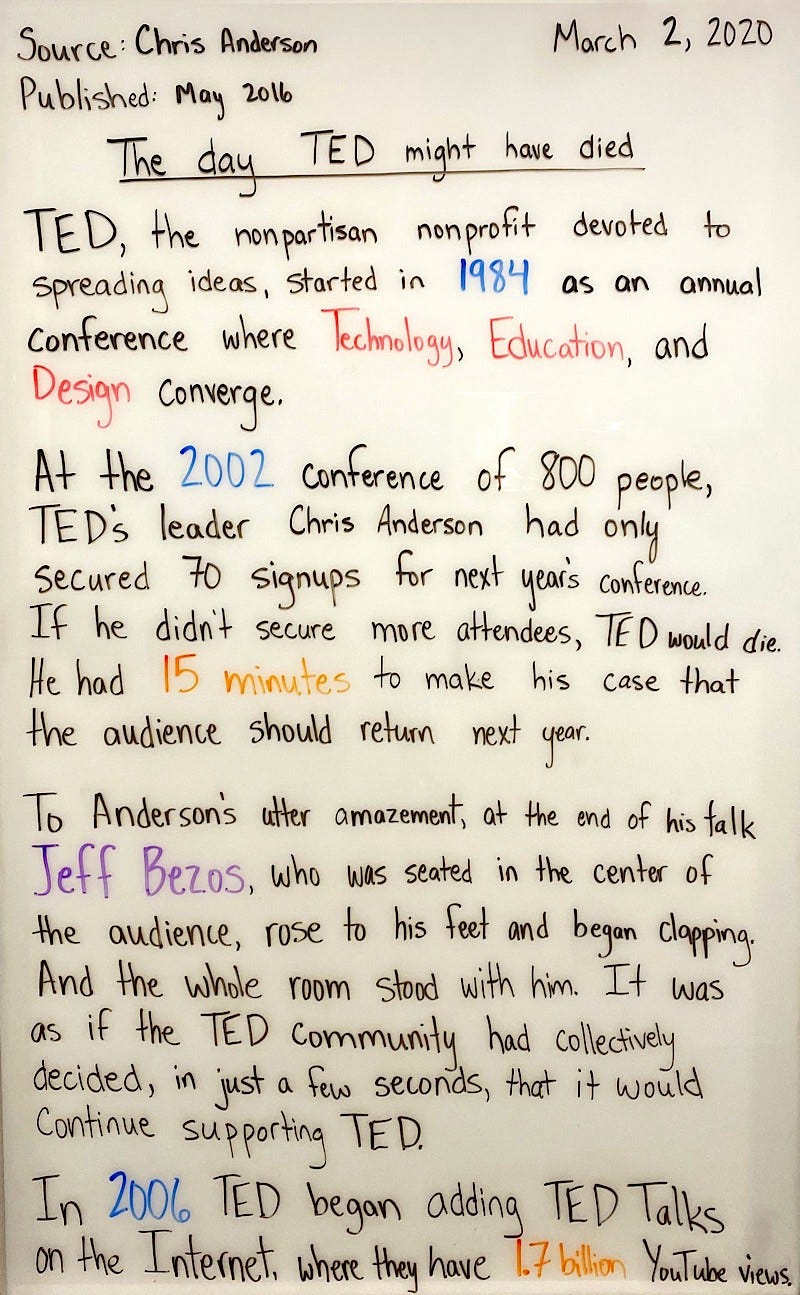 Source: Chris Anderson
March 2, 2020
Published: May 2016
The day TED might have died
TED, the nonpartisan nonprofit devoted to
spreading ideas, started in 1984 as an annual
conference where Technology, Education, and
Design converge.
At the 2002 conference of 800 people,
TED's leader Chris Anderson had only
secured 70 signups for next year's conference.
If he didn't secure more attendees, TED would die.
He had 15 minutes to make his case that
the audience should return next year.
To Anderson's utter amazement, at the end of his talk
Jeff Bezos, who was seated in the center of
the audience, rose to his feet and began clapping.
And the whole room stood with him. It was
as if the TED community had collectively
decided, in just a few seconds, that it would
Continue supporting TED.
In 2006 TED began adding TED Talks
on the Internet, where they have 1.7 billion YouTube views.